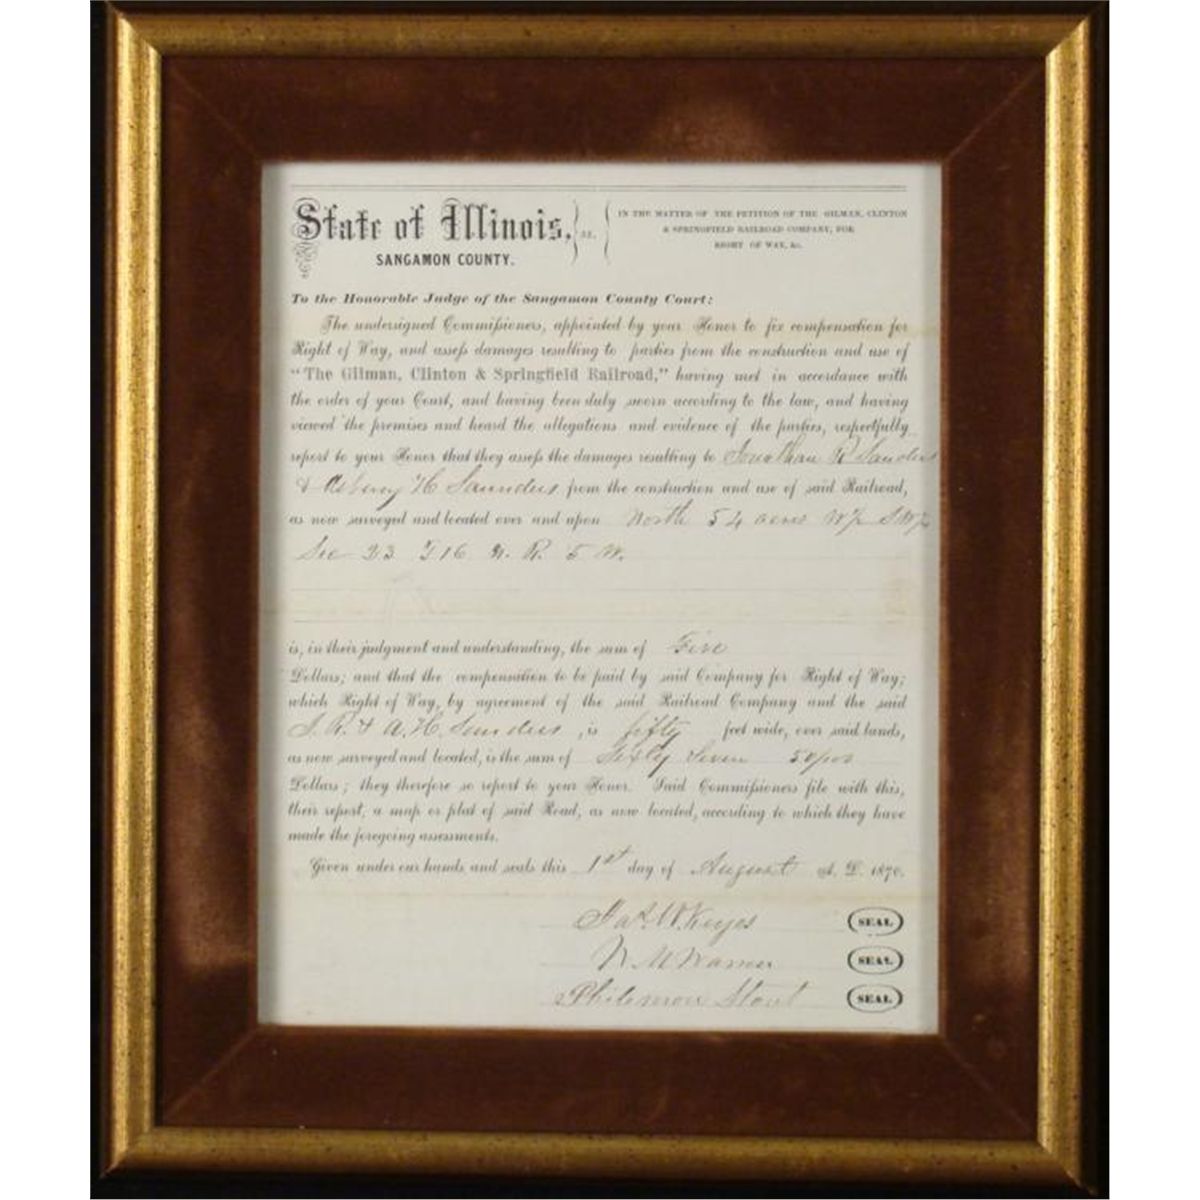 State of Illinois, ss.
SANGAMON COUNTY.
IN THE MATTER OF THE PETITION OF THE GILMAN, CLINTON
& SPRINGFIELD RAILROAD COMPANY, FOR
RIGHT OF WAY, &c.
To the Honorable Judge of the Sangamon County Court:
The undersigned Commissioners, appointed by your Honor to fix compensation for
Right of Way, and assess damages resulting to parties from the construction and use of
"The Gilman, Clinton & Springfield Railroad," having met in accordance with
the order of your Court, and having been duly sworn according to the law, and having
viewed the premises and heard the allegations and evidence of the parties, respectfully
report to your Honor that they assess the damages resulting to Jonathan R Saunders
& Asbury H Saunders from the construction and use of said Railroad,
as now surveyed and located over and upon North 54 acres W½ SW¼
Sec 23 T16 N. R. 5 W.
is, in their judgment and understanding, the sum of Five
Dollars; and that the compensation to be paid by said Company for Right of Way;
which Right of Way, by agreement of the said Railroad Company and the said
J. R. & A. H. Saunders, is fifty feet wide, over said lands,
as now surveyed and located, is the sum of Sixty Seven 50/100
Dollars; they therefore so report to your Honor. Said Commissioners file with this,
their report, a map or plat of said Road, as now located, according to which they have
made the foregoing assessments.
Given under our hands and seals this 1st day of August A. D. 1870.
Jas. W. Keyes SEAL
SEAL
Philemon Stout SEAL